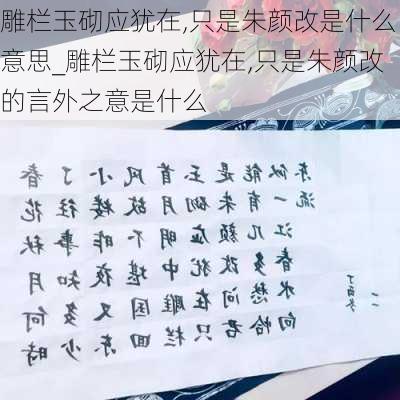 雕栏玉砌应犹在,只是朱颜改是什么
意思_雕栏玉砌应犹在,只是朱颜改
的言外之意是什么
春花秋月何時
了往事知多少
小楼昨夜又东
风故不堪国回
首月明中雕栏
玉砌应犹在只
是朱颜改问君
能有几多愁恰
似一江春水向
东流
丁酉冬